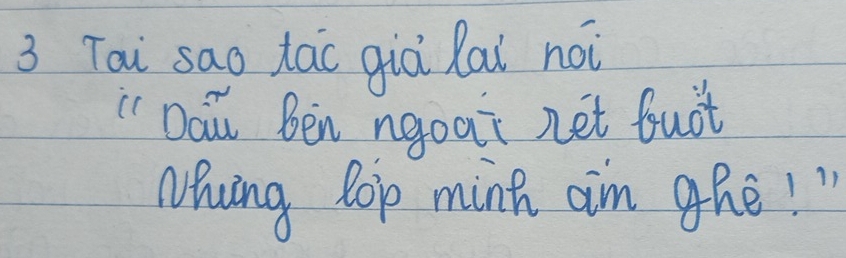 3 Tại sao tác giả lại nói
"Dẫu bên ngoài rét buốt
Nhưng lớp mình ấm ghê!"